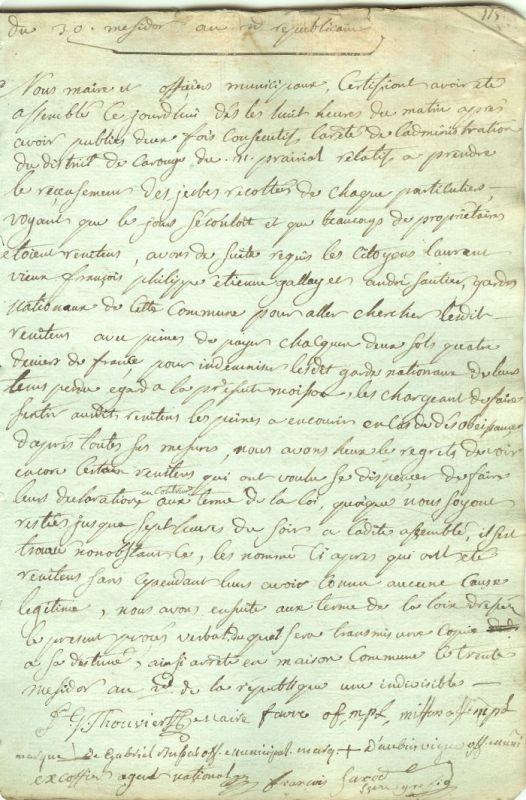 115.
du 30. messidor an 2d republicain
Nous maire et officiers municipaux, Certifiont avoir eté
assemblé Ce jourdhui dès les huit heures du matin après
avoir publiés deux fois Consecutifs, larrêté de ladministration
du district de Carouge du 21 prairial relatif a prendre
le recensement des jerbes recoltés de chaque particuliers
voyant que le jours Sécouloit et que beaucoup de propriétaires
étoient renitens, avons de Suite requis les Citoyens laurent
vieux françois philippe étienne gallay et andré Sautier, gardes
nationaux de Cette Commune pour aller chercher lesdit
renitens avec peines de payer chacquun deux sols quatre
deniers de france pour indemniser lesdit garde nationaux de leurs
tems perdu egard a la présente moisson, les chargeant de faire
sentir audit renitens les peines a encourir en Cas de désobeissance
d'après toutes Ses mesures, nous avons heux le regrets de voir
encore Certain renitens qui ont voulu Se dispenser de faire
leurs déclarations en Conformité aux terme de la loi, quoique nous Soyont
restés jusque Sept heures du Soirs a ladite assemblé, il sest
trouvé nonobstant Ce, les nommé Ci après qui ont eté
renitens Sans Cependant leurs avoir Connu aucune Cause
legitime, nous avons ensuite aux terme de la loix dressé
le present procès verbal duquel Sera transmis une Copie
a Sa destiné, ainsi arrêté en maison Commune le trente
messidor an 2d. de la république une indivisible
J. G. Thouvier maire favre of. mpl, off. mpl
marque de Gabriel off. municipal marq. + d'aubin vieux off. muni
excoffier agent national françois Secy greffie